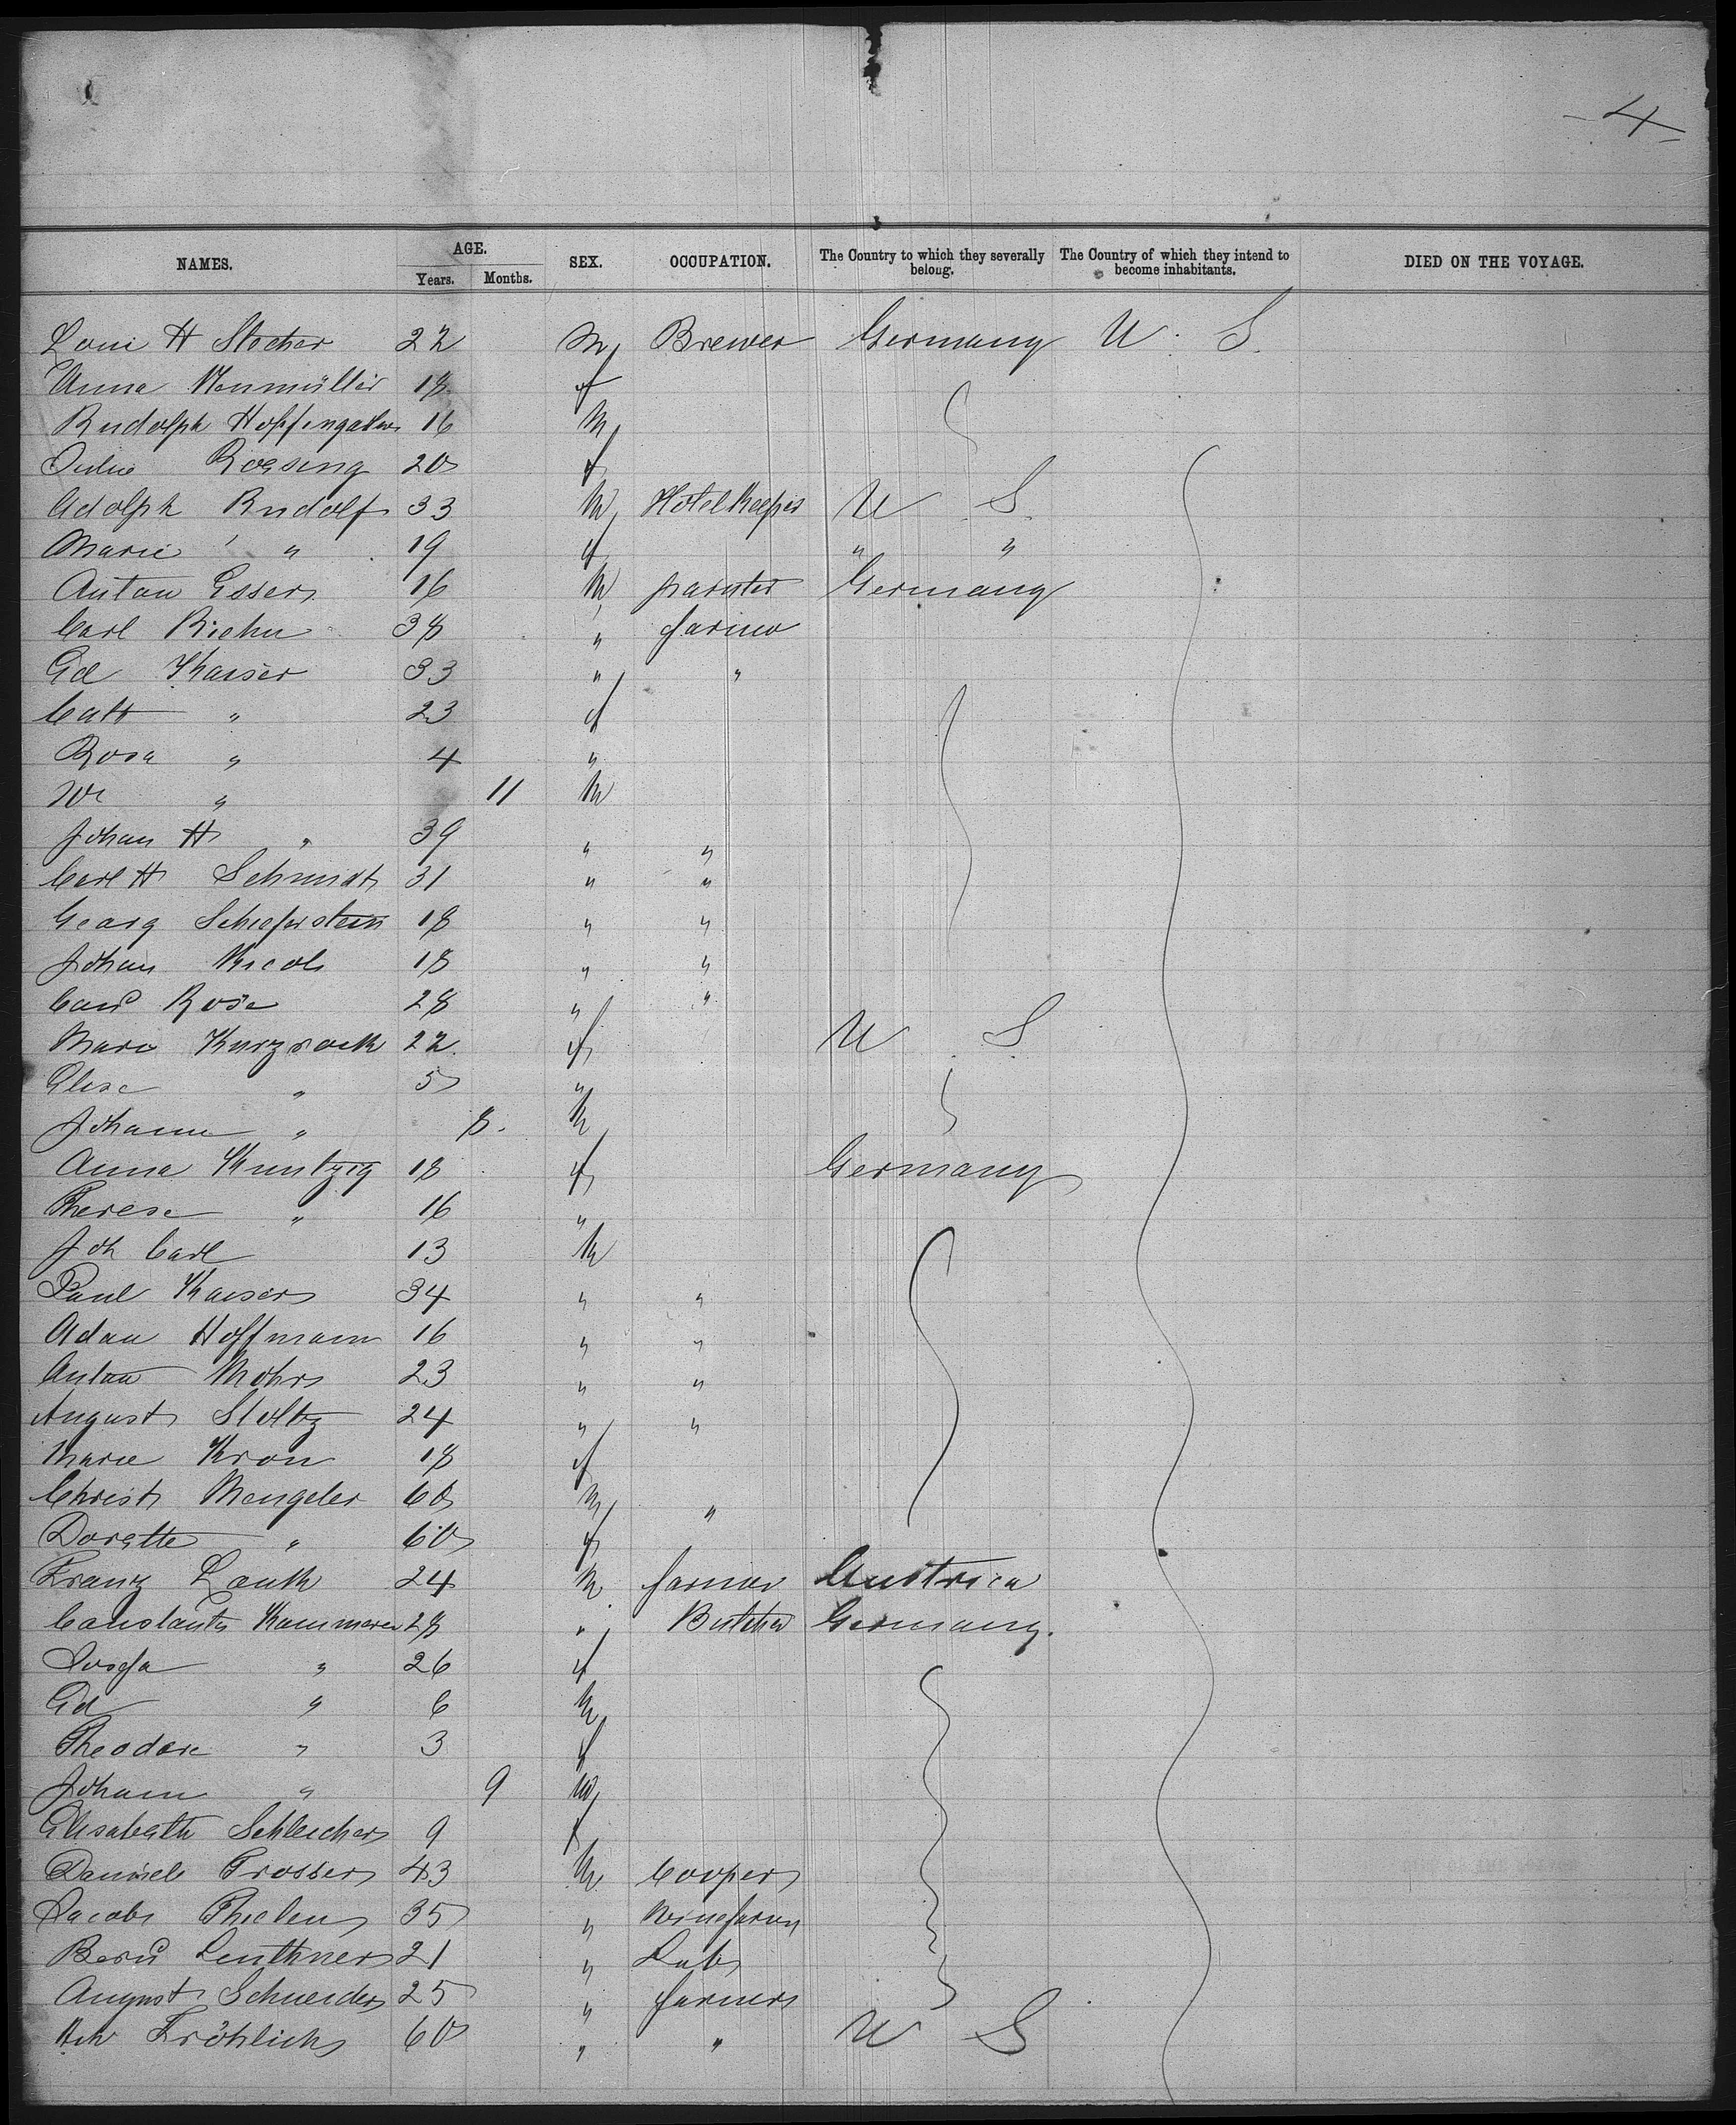 - 4 -
NAMES. AGE. SEX. OCCUPATION. The Country to which they severally belong. The Country of which they intend to become inhabitants. DIED ON THE VOYAGE.
Years. Months.
Loui H Stocker 22 M Brewer Germany U. S.
Anna Neumüller 18 f
Rudolph 16 M
Julie Roesing 20 f
Adolph Rudolf 33 M Hotel Keeper U S.
Marie " 19 f " "
Anton Esser 16 M painter Germany
Carl Riehn 38 " farmer
Ed Kaiser 33 " "
Cath " 23 f
Rosa " 4 "
We " 11 M
Johan H " 39 " "
Carl H Schmidt 31 " "
Georg 18 " "
Johan 18 " "
Rose 28 " "
Marie Kurzrock 22 f U S
Elise " 5 "
Johann " 8. M
Anna Kuntzig 18 f Germany
Therese " 16 "
Joh Carl 13 M
Paul Kaiser 34 " "
Adam Hoffmann 16 " "
Anton Mohr 23 " "
August Stoltz 24 " "
Marie Kron 18 f
Christ Mengeler 60 M "
Dorette " 60 f
Franz Lauth 24 M farmer Austria
Constantin Kammerer 28 " Butcher Germany.
Josefa " 26 f
Ed " 6 M
Theodore " 3 f
Johann " 9 M
Elisabeth Schleicher 9 f
Daniel Prosser 43 M Cooper
Jacob Thielen 35 " Winefarm
Bernd Leuthner 21 " Lab
August Schneider 25 " farmer
Hch Fröhlich 60 " " U S